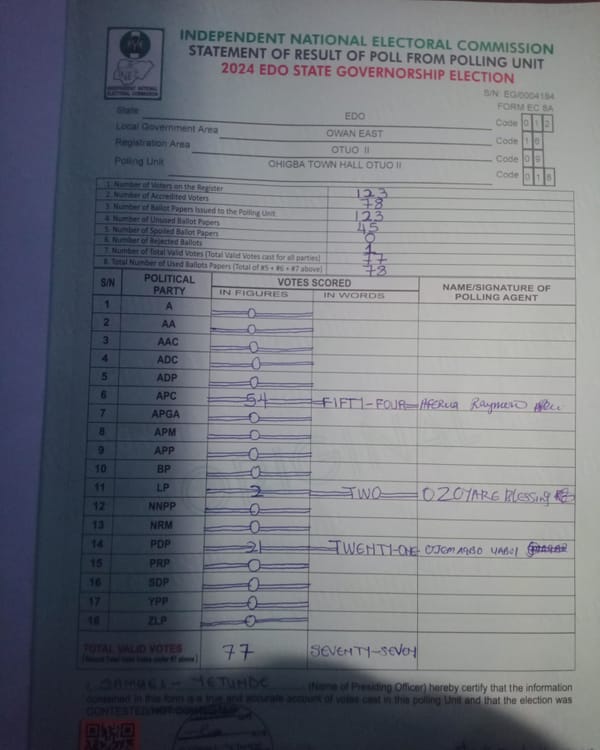 INDEPENDENT NATIONAL ELECTORAL COMMISSION
STATEMENT OF RESULT OF POLL FROM POLLING UNIT
2024 EDO STATE GOVERNORSHIP ELECTION
INDEPENDENT NATIONAL ELECTORAL COMMISSION
S/N: EG/0004184
FORM EC 8A
State EDO Code 0 1 2
Local Government Area OWAN EAST Code 1 6
Registration Area OTUO II Code 0 9
Polling Unit OHIGBA TOWN HALL OTUO II Code 0 1 8
1. Number of Voters on the Register 123
2. Number of Accredited Voters 78
3. Number of Ballot Papers Issued to the Polling Unit 123
4. Number of Unused Ballot Papers 45
5. Number of Spoiled Ballot Papers 0
6. Number of Rejected Ballots 1
7. Number of Total Valid Votes (Total Valid Votes cast for all parties) 77
8. Total Number of Used Ballots Papers (Total of #5 + #6 + #7 above) 78
S/N POLITICAL PARTY VOTES SCORED NAME/SIGNATURE OF POLLING AGENT
IN FIGURES IN WORDS
1 A 0
2 AA 0
3 AAC 0
4 ADC 0
5 ADP 0
6 APC 54 FIFTY-FOUR Raymond
7 APGA 0
8 APM 0
9 APP 0
10 BP 0
11 LP 2 TWO OZOYARE BLESSING
12 NNPP 0
13 NRM 0
14 PDP 21 TWENTY-ONE
15 PRP 0
16 SDP 0
17 YPP 0
18 ZLP 0
TOTAL VALID VOTES 77 SEVENTY-SEVEN
I, SAMUEL - YETUNDE (Name of Presiding Officer) hereby certify that the information
contained in this form is a true and accurate account of votes cast in this polling Unit and that the election was
CONTESTED/NOT CONTESTED